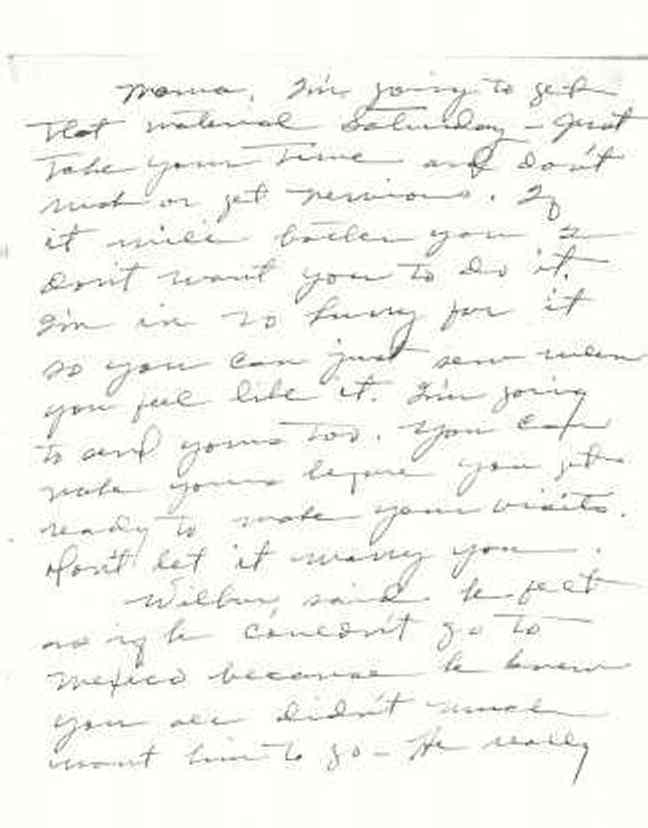 Mama, I'm going to get
that material Saturday - Just
take your time and don't
rush or get nervious. If
it will bother you I
don't want you to do it.
I'm in no hurry for it
so you can just sew when
you feel like it. I'm going
to send yours too. You can
make yours before you get
ready to make your visits.
Don't let it worry you.
Wilbur, said he felt
as if he couldn't go to
Mexico because he knew
you all didn't much
want him to go - He really